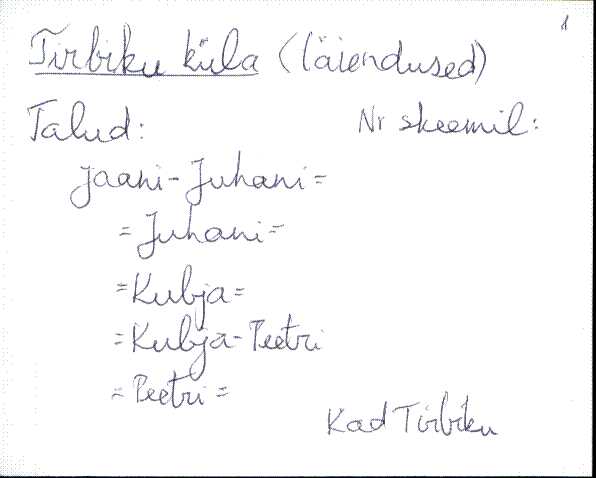 1
Tirbiku küla (läiendused)
Talud: Nr skeemil:
Jaani-Juhani=
=Juhani=
=Kubja=
=Kubja-Peetri
=Peetri=
Kad Tirbiku